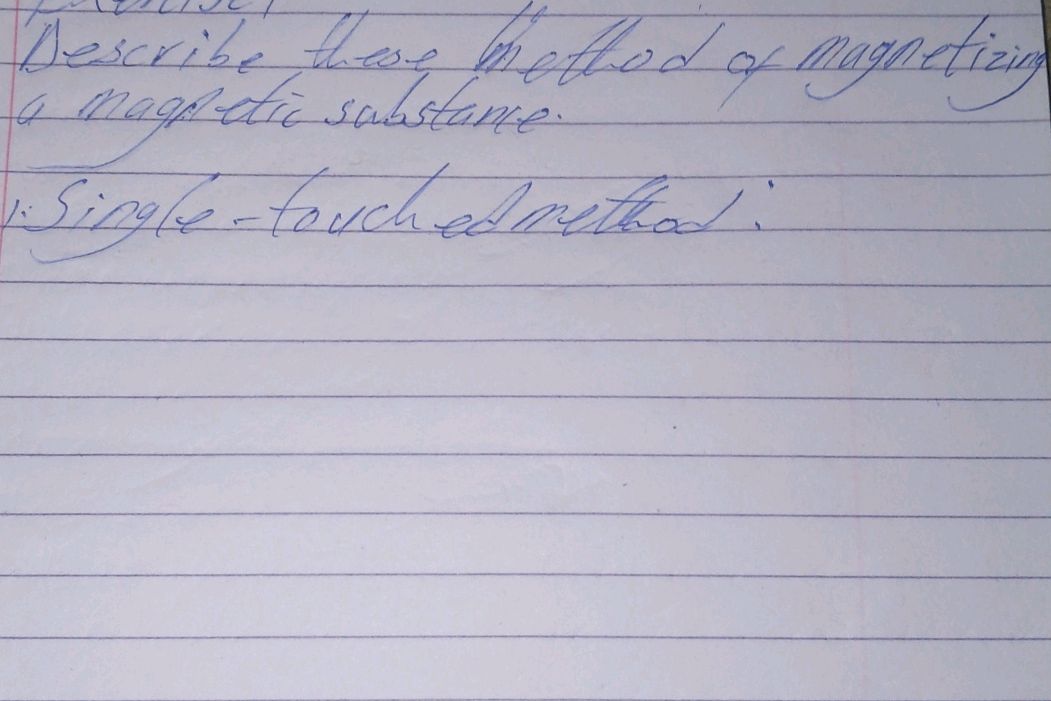 Exercise1
Describe these method of magnetizing
a magnetic substance.
1. Single-touched method: